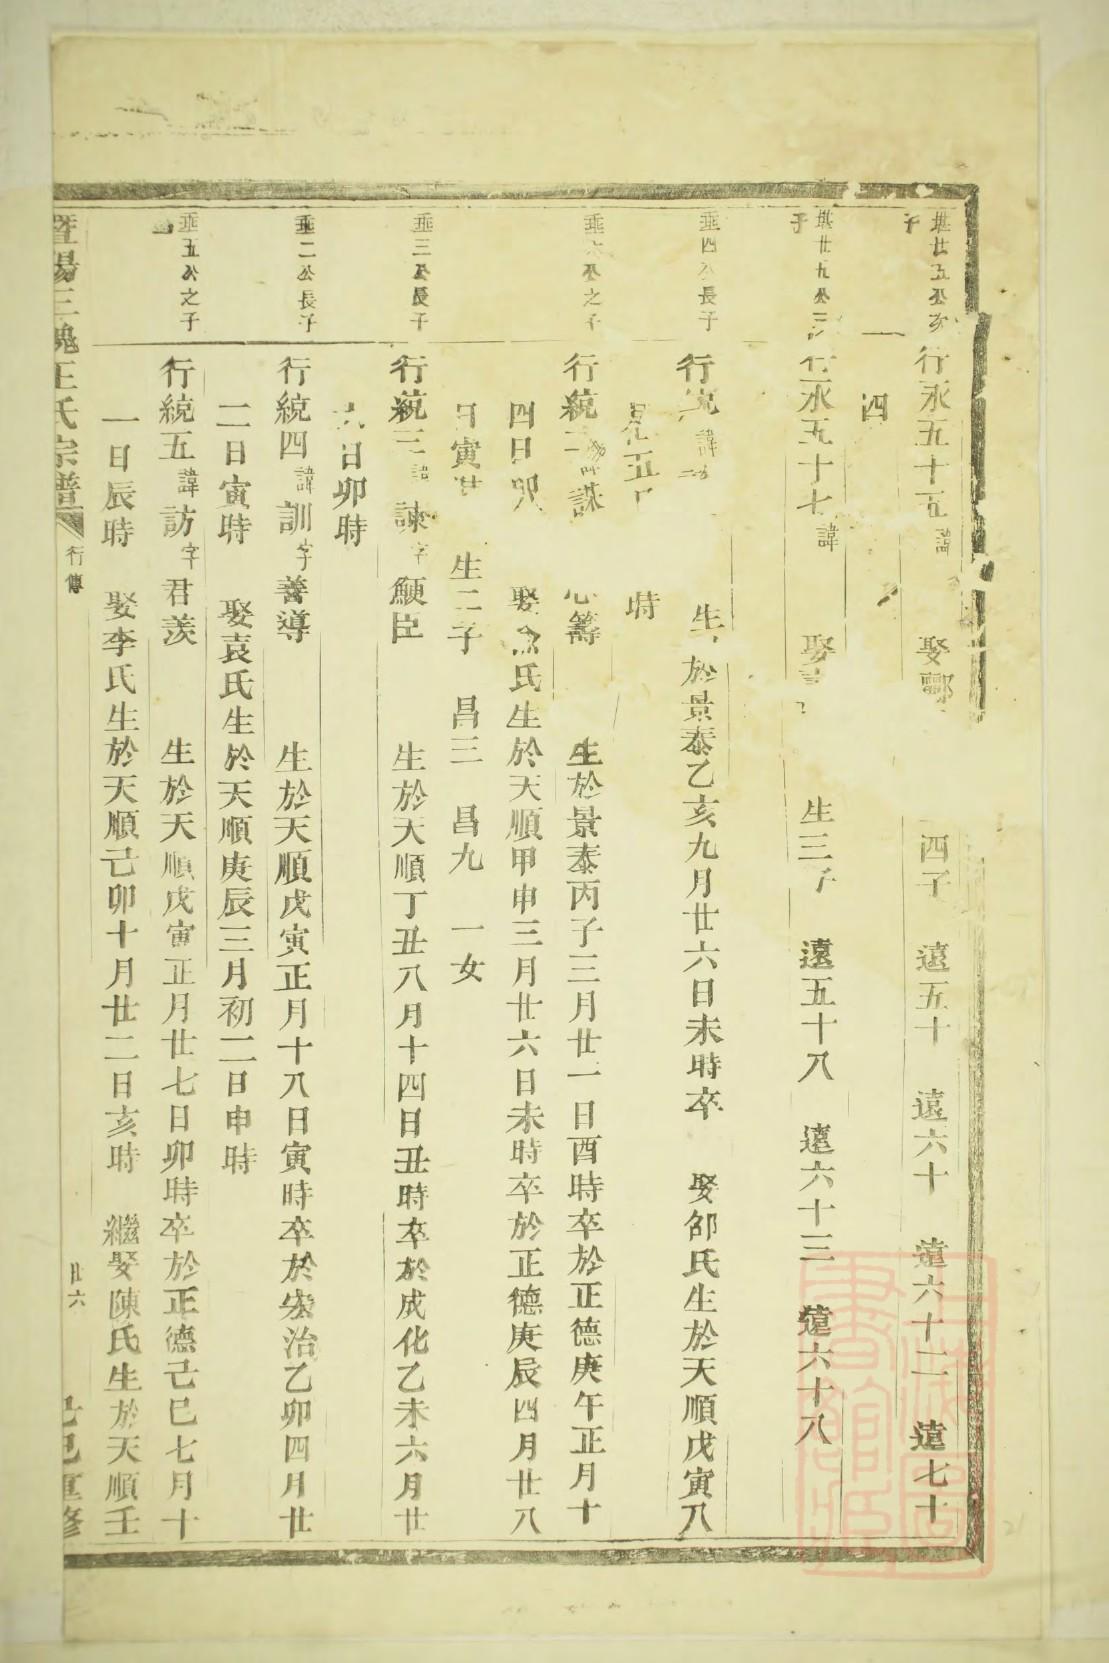 行永五十五諱 娶酈 四子 遠五十 遠六十 遠六十二 遠七十
四
行永五十七諱 娶 生三子 遠五十八 遠六十三 遠六十八
垂四公長子
行統諱 生於景泰乙亥九月廿六日未時卒 娶邵氏生於天順戊寅八
時
垂六公之子
行統 心籌 生於景泰丙子三月廿一日酉時卒於正德庚午正月十
四日卯 娶 氏生於天順甲申三月廿六日未時卒於正德庚辰四月廿八
日寅 生二子 昌三 昌九 一女
垂三公長子
行統三諱諫字鯁臣 生於天順丁丑八月十四日丑時卒於成化乙未六月廿
日卯時
垂二公長子
行統四諱訓字善導 生於天順戊寅正月十八日寅時卒於宏治乙卯四月廿
二日寅時 娶袁氏生於天順庚辰三月初二日申時
垂五公之子
行統五諱訪字君羨 生於天順戊寅正月廿七日卯時卒於正德己巳七月十
一日辰時 娶李氏生於天順己卯十月廿二日亥時 繼娶陳氏生於天順壬
暨陽三槐王氏宗譜 行傳 廿六 己巳重修
上海圖書館藏